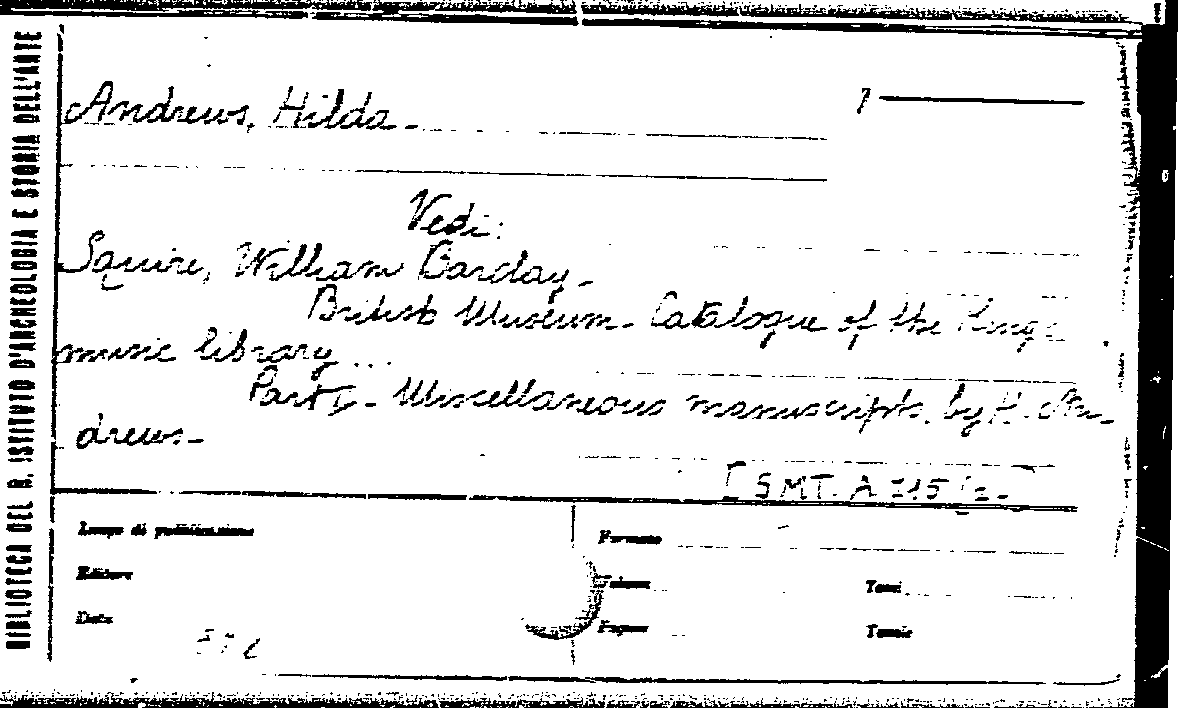 BIBLIOTECA DEL R. ISTITUTO D'ARCHEOLOGIA E STORIA DELL'ARTE
Andrews, Hilda
Vedi:
Squire, William Barclay
British Museum. Catalogue of the Kings
music library...
Part I. Miscellaneous manuscripts, by H. An-
drews
[SMT. A 215
Luogo di pubblicazione
Formato
Editore
Volumi
Tomi
Data
Pagine
Tavole